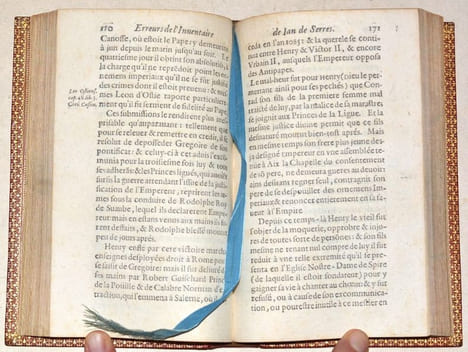 170 Erreurs de l'Inuentaire
Canosse, où estoit le Pape y demeura
à juin depuis le marin jusqu'au soir. Le
quatriesme jour il obtint son absolution, à
la charge qu'il ne reprẽdoit point les en-
nemens imperiaux qu'il ne se fut justifié
des crimes dont il estoit preuenu: & mes-
mes Leon d'Ostie raporte particulieres-
ment qu'il fit serment de fidelité au Pape.
Leo Ostiens.
Ces submissions le rendirent plus mes-
prisable qu'auparauant: tellement que
pour se releuer & remettre en credit, il se
resolut de deposseder Gregoire de son
pontificat: & celuy-ci cet adis l'excõ-
munia pour la troisiesme fois luy & tous
ses adherẽs & les Princes liguès, qui auoiẽt
sursis la guerre attendant l'issue de la jus-
tification de l'Empereur, reprirent les ar-
mes sous la conduite de Rodolphe Roy
de Suaube, lequel ils declarerent Empe-
reur mais en estans venus aux mains ils fu-
rent desfaits, & Rodolphe blessé mourut
peu de jours aprés.
Henry enflé par cete victoire marcha
enseignes desployées droit à Rome pour
se saisir de Gregoire: mais il fut deliuré de
ses mains par Robert Guischard Prince
de la Pouille & de Calabre Norman d'ex-
traction, qui l'emmena à Salerne, où il
de Jan de Serres. 171
ceda en l'an 1085: & la querele se conti-
nua entre Henry & Victor II, & encore
Urbain II, ausquels l'Empereur opposa
des Antipapes.
Le mal-heur fut pour Henry (Dieu le per-
metant ainsi pour ses pechés) que Conrad
son fils de la premiere femme mal
traité de luy, par la malice de sa marastre,
se joignit aux Princes de la Ligue. Et la
mesme justice diuine permit que ce fils
desnaturé mourut bien-tost aprés. Mais
en mesme temps son frere plus jeune des-
ja designé empereur en vne asemblée te-
nue à Aix la Chapelle du consentement
de son pere, ne demeura gueres au deuoir:
ains desirant regner seul, contraignit son
pere de se despouiller des ornemens Im-
periaux, & renoncer entierement en sa fa-
ueur à l'Empire.
Depuis ce temps-là Henry le vieil fut
l'objet de la moquerie, opprobre & injures
de toutes sortes de personnes: & son fils
mesme ne tenant nul compte de luy il fut
reduit à vne telle extremité qu'il se pre-
senta en l'Eglise Nostre-Dame de Spire
(de laquelle il estoit fondateur) pour y
gagner sa vie à chanter au chœur, & y fut
refusé, ou à cause de son excommunicati-
on, ou pour estre inutile à ce mestier en